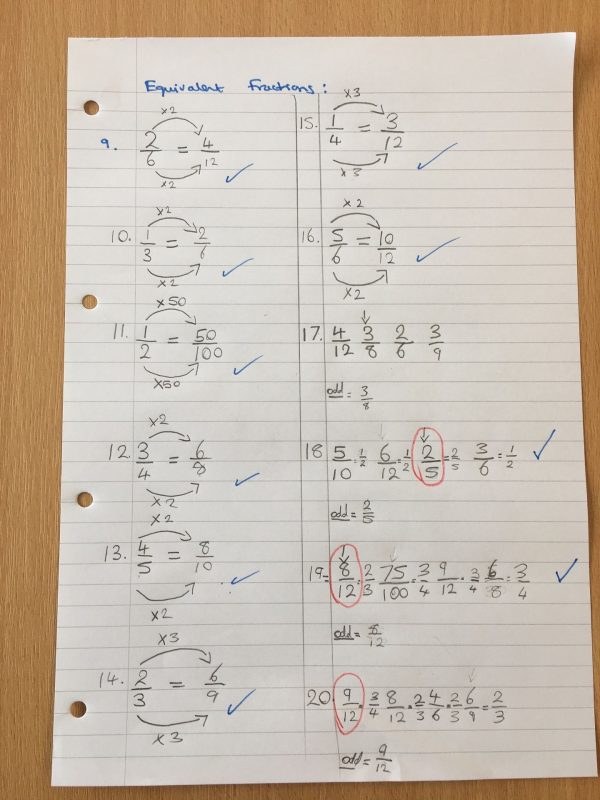 Equivalent Fractions:
9. 2/6 = 4/12 x2 x2
10. 1/3 = 2/6 x2 x2
11. 1/2 = 50/100 x50 x50
12. 3/4 = 6/8 x2 x2
13. 4/5 = 8/10 x2 x2
14. 2/3 = 6/9 x3 x3
15. 1/4 = 3/12 x3 x3
16. 5/6 = 10/12 x2 x2
17. 4/12 3/8 2/6 3/9
odd = 3/8
18 5/10 = 1/2 6/12 = 1/2 2/5 = 2/5 3/6 = 1/2
odd = 2/5
19= 8/12 = 2/3 75/100 = 3/4 9/12 = 3/4 6/8 = 3/4
odd = 8/12
20. 9/12 = 3/4 8/12 = 2/3 4/6 = 2/3 6/9 = 2/3
odd = 9/12